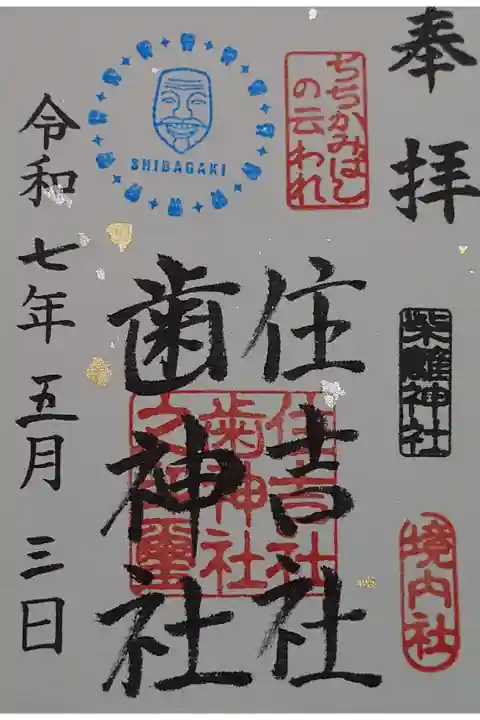 奉拝
柴籬神社
境内社
ちちかみばし
の云われ
住吉社
歯神社
住吉社
歯神社
SHIBAGAKI
令和七年五月三日